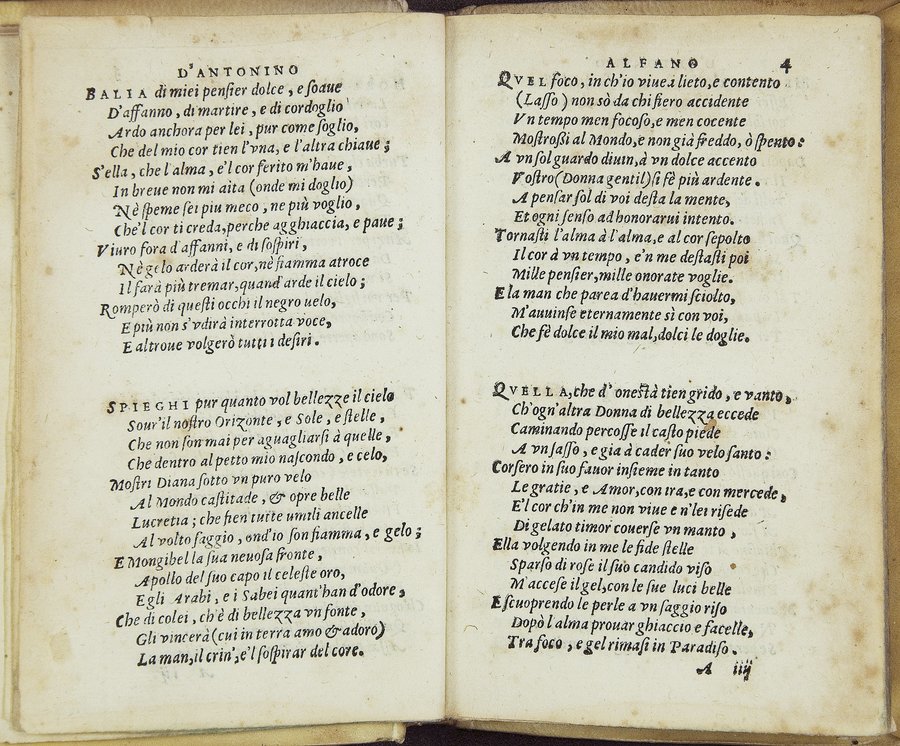 D'ANTONINO
BALIA di miei pensier dolce, e soaue
D'affanno, di martire, e di cordoglio
Ardo anchora per lei, pur come soglio,
Che del mio cor tien l'vna, e l'altra chiaue;
S'ella, che l'alma, e'l cor ferito m'haue,
In breue non mi aita (onde mi doglio)
Nè speme sei piu meco, ne più voglio,
Che'l cor ti creda, perche agghiaccia, e paue;
Viuro fora d'affanni, e di sospiri,
Nè gelo arderà il cor, nè fiamma atroce
Il farà più tremar, quand'arde il cielo;
Romperò di questi occhi il negro uelo,
E più non s'vdirà interrotta voce,
E altroue volgerò tutti i desiri.
SPIEGHI pur quanto vol bellezze il cielo
Sour'il nostro Orizonte, e Sole, e stelle,
Che non son mai per aguagliarsi à quelle,
Che dentro al petto mio nascondo, e celo,
Mostri Diana sotto vn puro velo
Al Mondo castitade, & opre belle
Lucretia; che fien tutte umili ancelle
Al volto saggio, ond'io son fiamma, e gelo;
E Mongibel la sua neuosa fronte,
Apollo del suo capo il celeste oro,
E gli Arabi, e i Sabei quant'han d'odore,
Che di colei, ch'è di bellezza vn fonte,
Gli vincerà (cui in terra amo & adoro)
La man, il crin', e'l sospirar del core.
ALFANO 4
QVEL foco, in ch'io viuea lieto, e contento
(Lasso) non sò da chi fiero accidente
Vn tempo men focoso, e men cocente
Mostroßi al Mondo, e non già freddo, ò spento:
A vn sol guardo diuin, à vn dolce accento
Vostro (Donna gentil) si fè più ardente.
A pensar sol di voi desta la mente,
Et ogni senso ad honorarui intento.
Tornasti l'alma à l'alma, e al cor sepolto
Il cor à vn tempo, e'n me destasti poi
Mille pensier, mille onorate voglie.
E la man che parea d'hauermi sciolto,
M'auuinse eternamente sì con voi,
Che fè dolce il mio mal, dolci le doglie.
QVELLA, che d'onestà tien grido, e vanto,
Ch'ogn'altra Donna di bellezza eccede
Caminando percosse il casto piede
A vn sasso, e già à cader suo velo santo:
Corsero in suo fauor insieme in tanto
Le gratie, e Amor, con ira, e con mercede,
E'l cor ch'in me non viue e n'lei risede
Di gelato timor couerse vn manto,
Ella volgendo in me le fide stelle
Sparso di rose il suo candido viso
M'accese il gel, con le sue luci belle
E scuoprendo le perle a vn saggio riso
Dopò l'alma prouar ghiaccio e facelle,
Tra foco, e gel rimasi in Paradiso.
A iiij